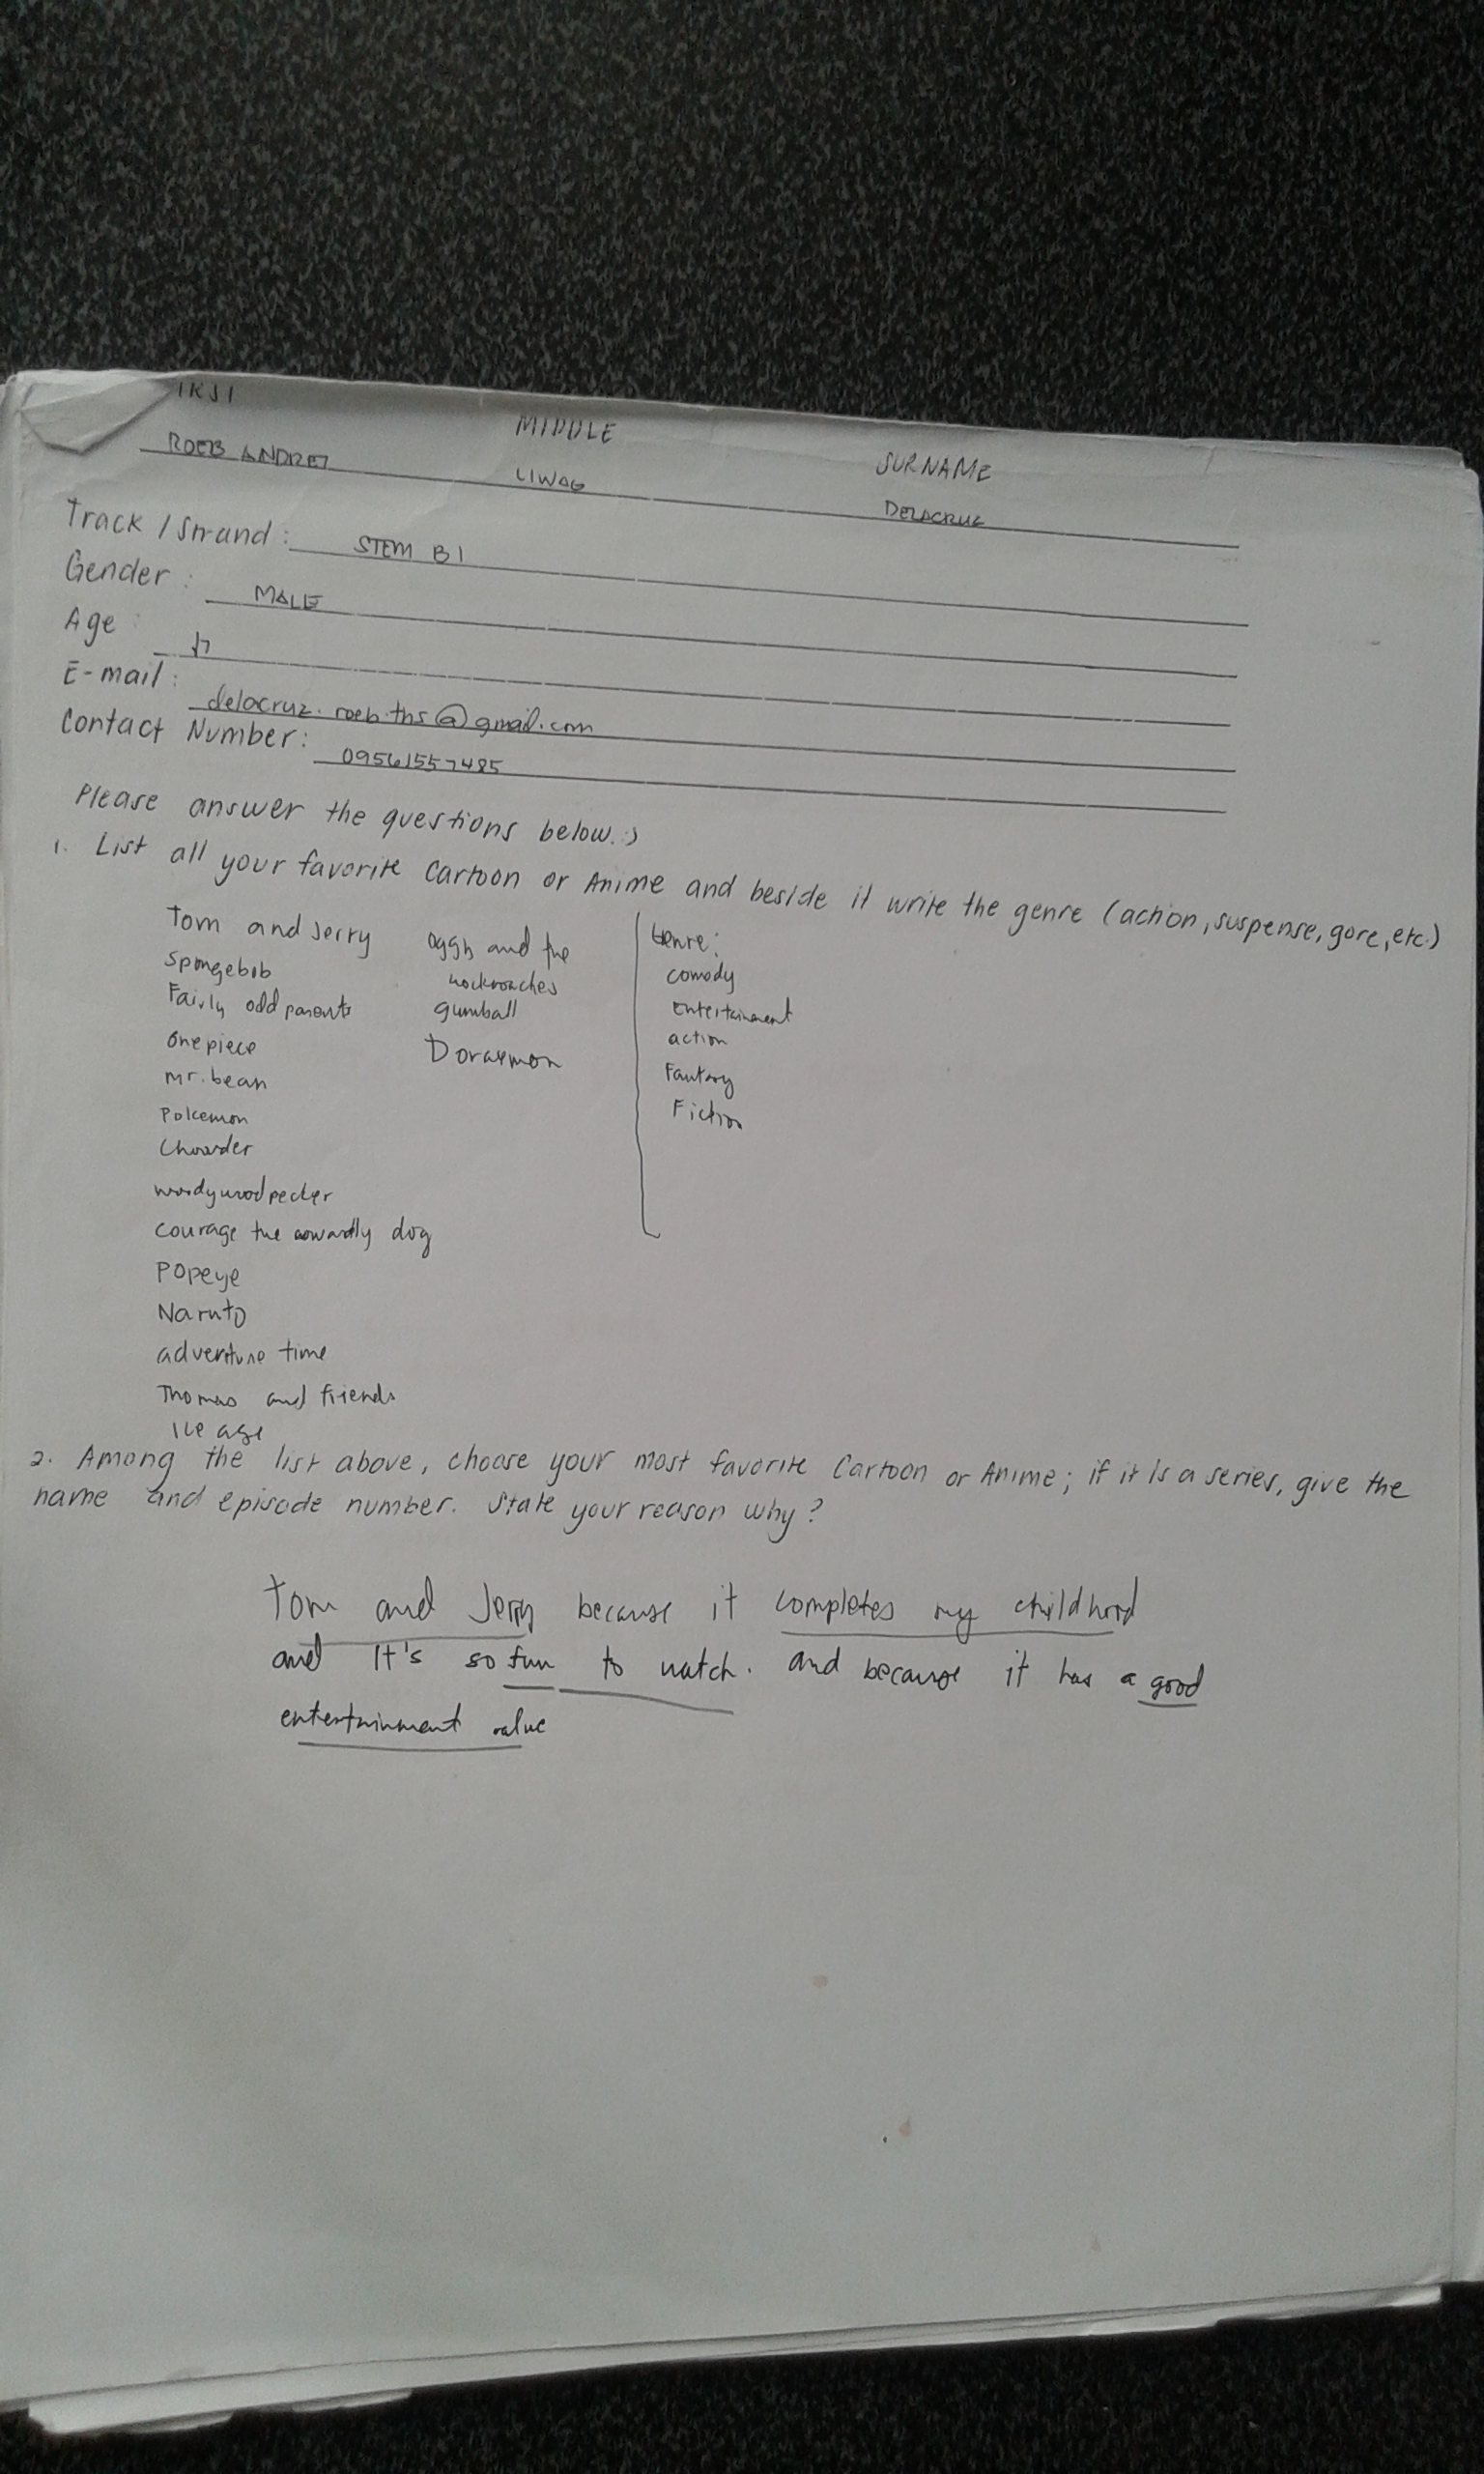 MIDDLE
SURNAME
ROEB ANDREI
LIWAG
DELACRUZ
Track / Strand: STEM B1
Gender: MALE
Age: 17
E-mail: delacruz.roeb.ths@gmail.com
Contact Number: 09561557485
Please answer the questions below. :)
1. List all your favorite Cartoon or Anime and beside it write the genre (action, suspense, gore, etc.)
Tom and Jerry
spongebob
Fairly odd parents
one piece
mr. bean
Pokemon
Chowder
woodywoodpecker
courage the cowardly dog
Popeye
Naruto
adventure time
Thomas and friends
Ice age
oggy and the
cockroaches
gumball
Doraemon
Genre:
comedy
Entertainment
action
Fantasy
Fiction
2. Among the list above, choose your most favorite Cartoon or Anime; if it is a series, give the
name and episode number. State your reason why?
Tom and Jerry because it completes my childhood
and It's so fun to watch. and because it has a good
entertainment value